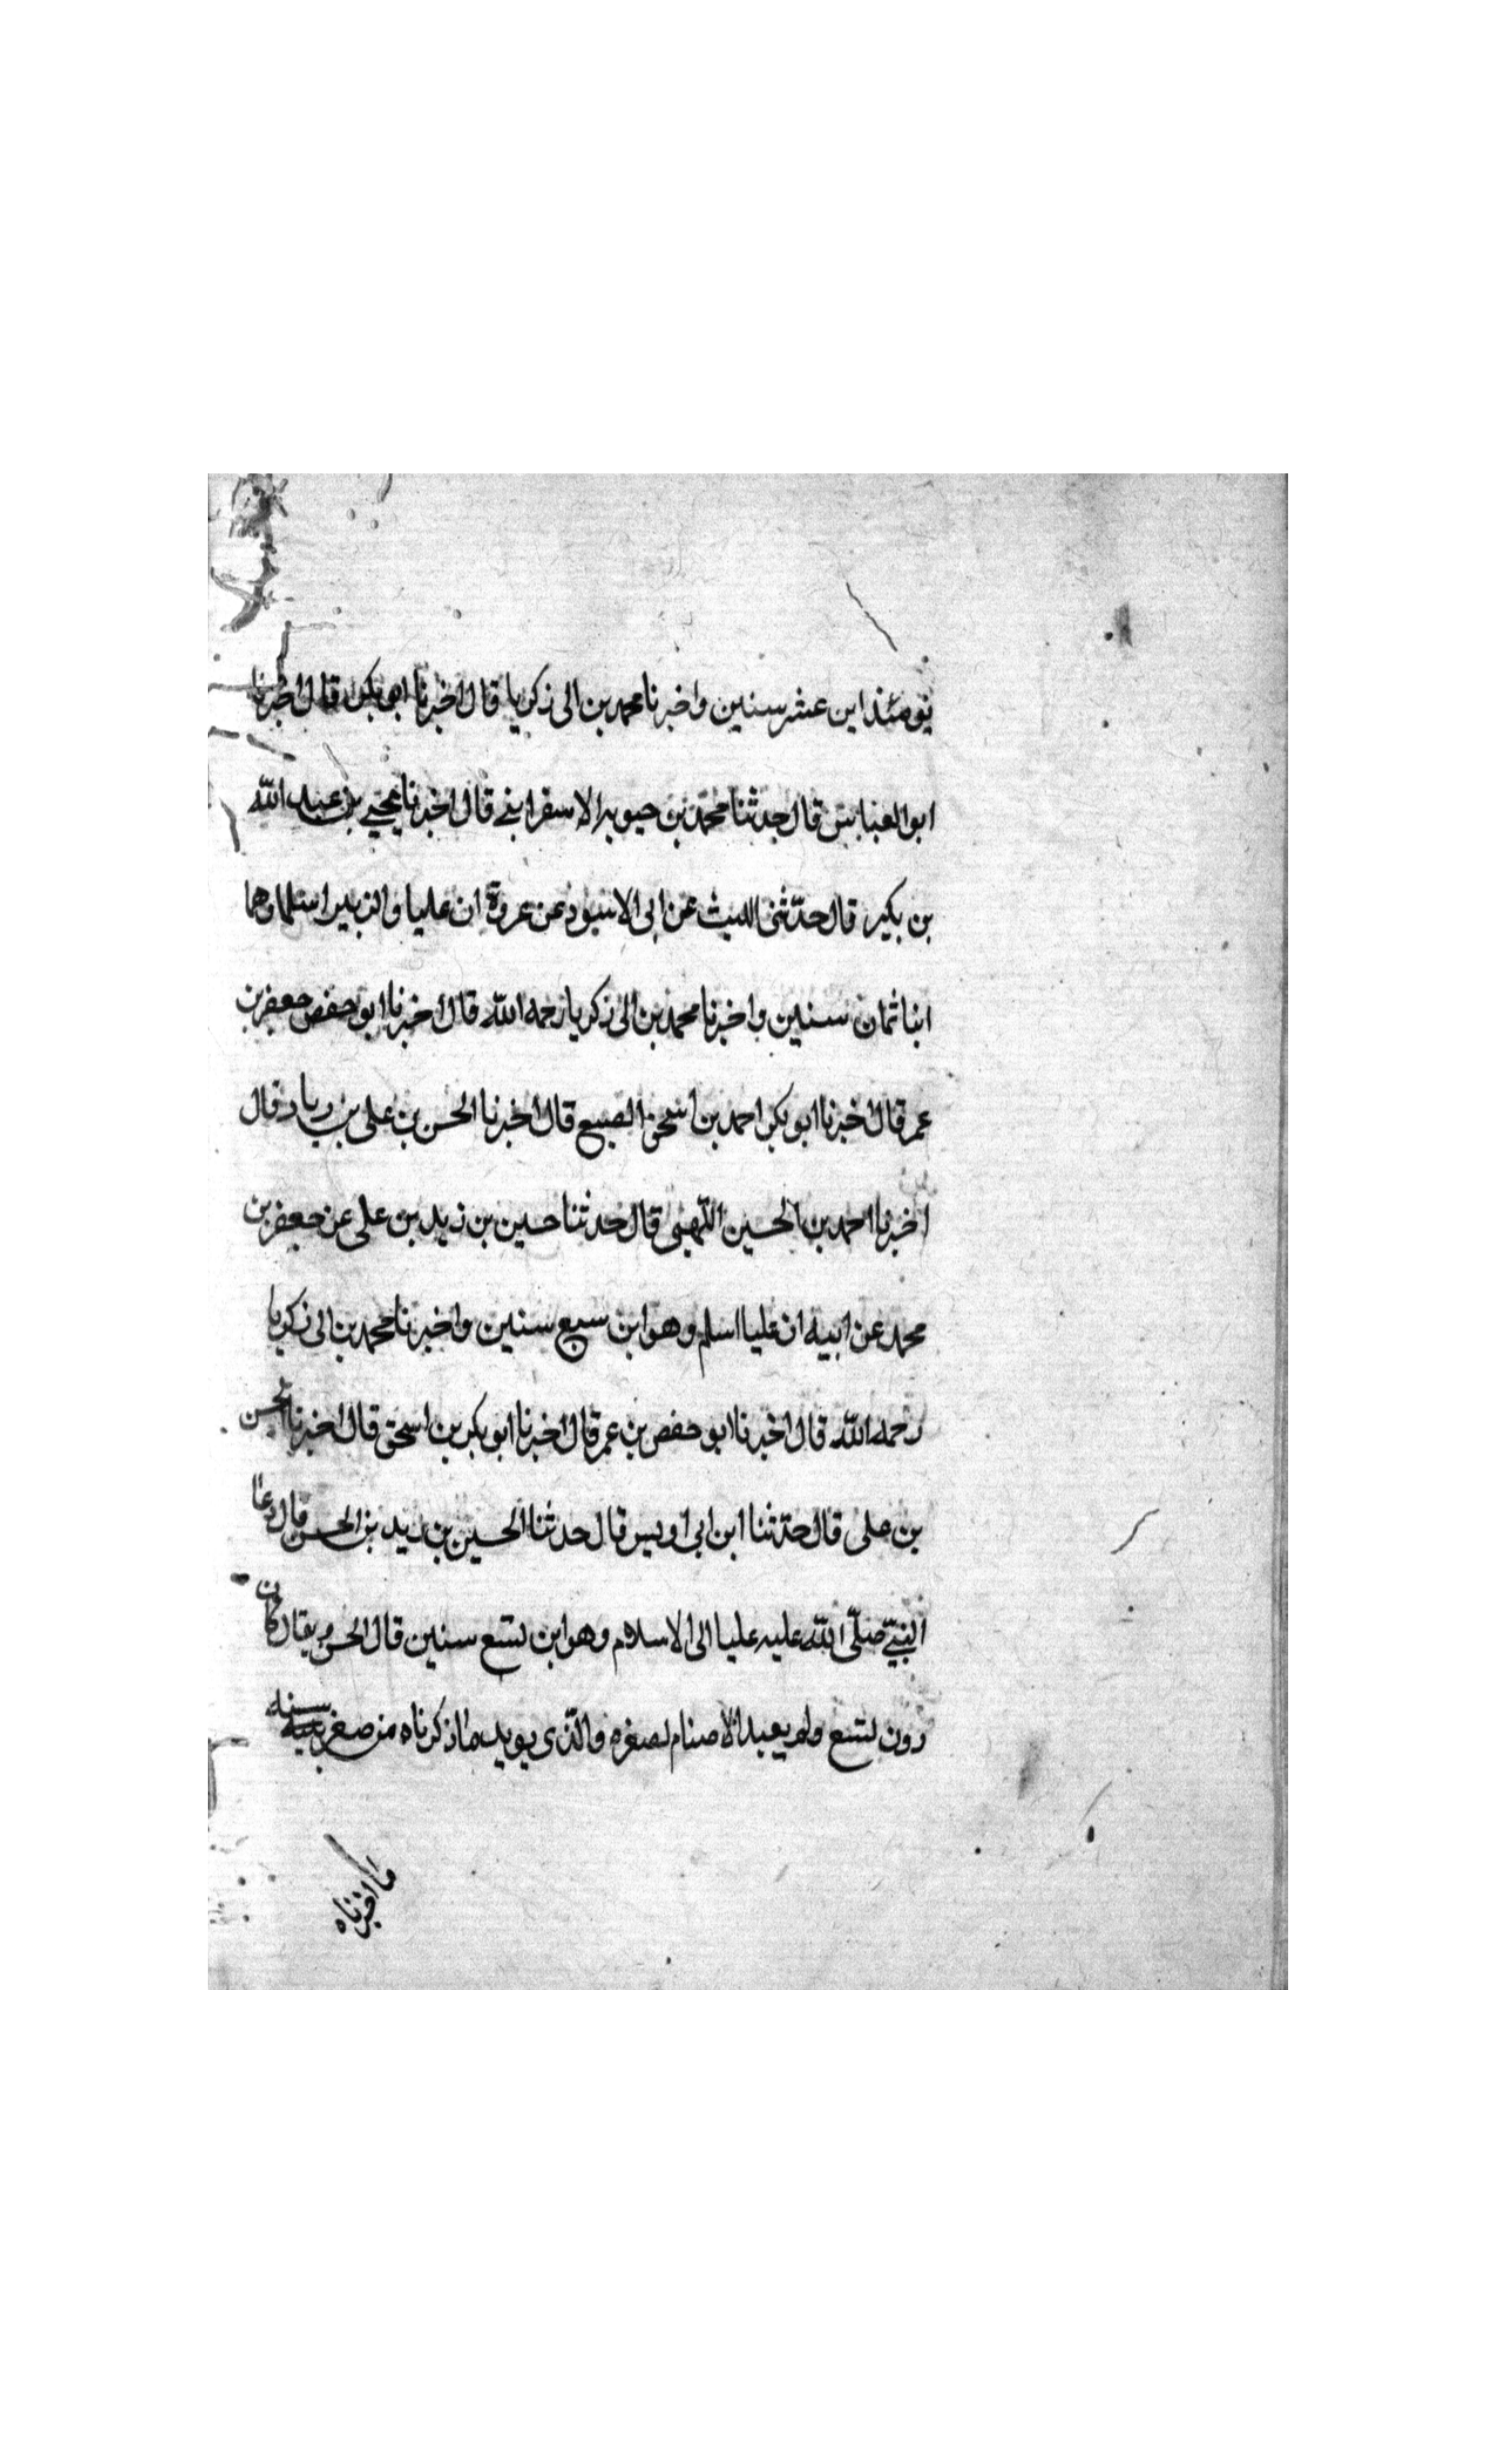 يومئذ ابن عشر سنين واخبرنا محمد بن ابى زكريا قال اخبرنا ابو بكر قال اخبرنا
ابو العباس قال حدثنا محمد بن حيويه الاسفراينى قال اخبرنا يحيى بن عبد الله
بن بكير قال حدّثنى الليث عن ابى الاسود عن عروة ان عليا والزبير اسلما وهما
ابنا ثمان سنين واخبرنا محمد بن ابى زكريا رحمه الله قال اخبرنا ابو حفص جعفر بن
عمر قال اخبرنا ابو بكر احمد بن اسحق الصبيع قال اخبرنا الحسن بن على بن زياد قال
اخبرنا احمد بن الحسين اللهبى قال حدثنا حسين بن زيد بن على عن جعفر بن
محمد عن ابيه ان عليا اسلم وهو ابن سبع سنين واخبرنا محمد بن ابى زكريا
رحمه الله قال اخبرنا ابو حفص بن عمر قال اخبرنا ابو بكر بن اسحق قال اخبرنا الحسن
بن على قال حدّثنا ابن ابى اويس قال حدثنا الحسين بن زيد بن الحسن قال دعا
النبىّ صلّى الله عليه عليا الى الاسلام وهو ابن تسع سنين قال الحسن ويقال كان
دون تسع ولم يعبد الاصنام لصغره والّذى يويد ما ذكرناه من صغر سنه
ما اخبرناه